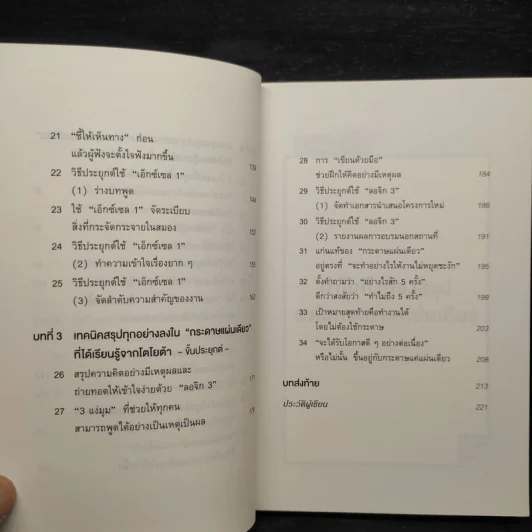 21 "ชี้ให้เห็นทาง" ก่อน
แล้วผู้ฟังจะตั้งใจฟังมากขึ้น
22 วิธีประยุกต์ใช้ "เอ็กซ์เซล 1"
(1) ร่างบทพูด
23 ใช้ "เอ็กซ์เซล 1" จัดระเบียบ
สิ่งที่กระจัดกระจายในสมอง
24 วิธีประยุกต์ใช้ "เอ็กซ์เซล 1"
(2) ทำความเข้าใจเรื่องยาก ๆ
25 วิธีประยุกต์ใช้ "เอ็กซ์เซล 1"
(3) จัดลำดับความสำคัญของงาน
บทที่ 3 เทคนิคสรุปทุกอย่างลงใน "กระดาษแผ่นเดียว"
ที่ได้เรียนรู้จากโตโยต้า - ขั้นประยุกต์ -
26 สรุปความคิดอย่างมีเหตุผลและ
ถ่ายทอดให้เข้าใจง่ายด้วย "ลอจิก 3"
27 "3 แง่มุม" ที่ช่วยให้ทุกคน
สามารถพูดได้อย่างเป็นเหตุเป็นผล
28 การ "เขียนด้วยมือ"
ช่วยฝึกให้คิดอย่างมีเหตุผล 184
29 วิธีประยุกต์ใช้ "ลอจิก 3"
(1) จัดทำเอกสารนำเสนอโครงการใหม่ 186
30 วิธีประยุกต์ใช้ "ลอจิก 3"
(2) รายงานผลการอบรมนอกสถานที่ 191
31 แก่นแท้ของ "กระดาษแผ่นเดียว"
อยู่ตรงที่ "จะทำอย่างไรให้งานไม่หยุดชะงัก" 195
32 ตั้งคำถามว่า "อย่างไรสัก 5 ครั้ง"
ดีกว่าสงสัยว่า "ทำไมถึง 5 ครั้ง" 199
33 เป้าหมายสุดท้ายคือทำงานได้
โดยไม่ต้องใช้กระดาษ 203
34 "จะได้รับโอกาสดี ๆ อย่างต่อเนื่อง"
หรือไม่นั้น ขึ้นอยู่กับกระดาษแค่แผ่นเดียว 208
บทส่งท้าย 213
ประวัติผู้เขียน 221